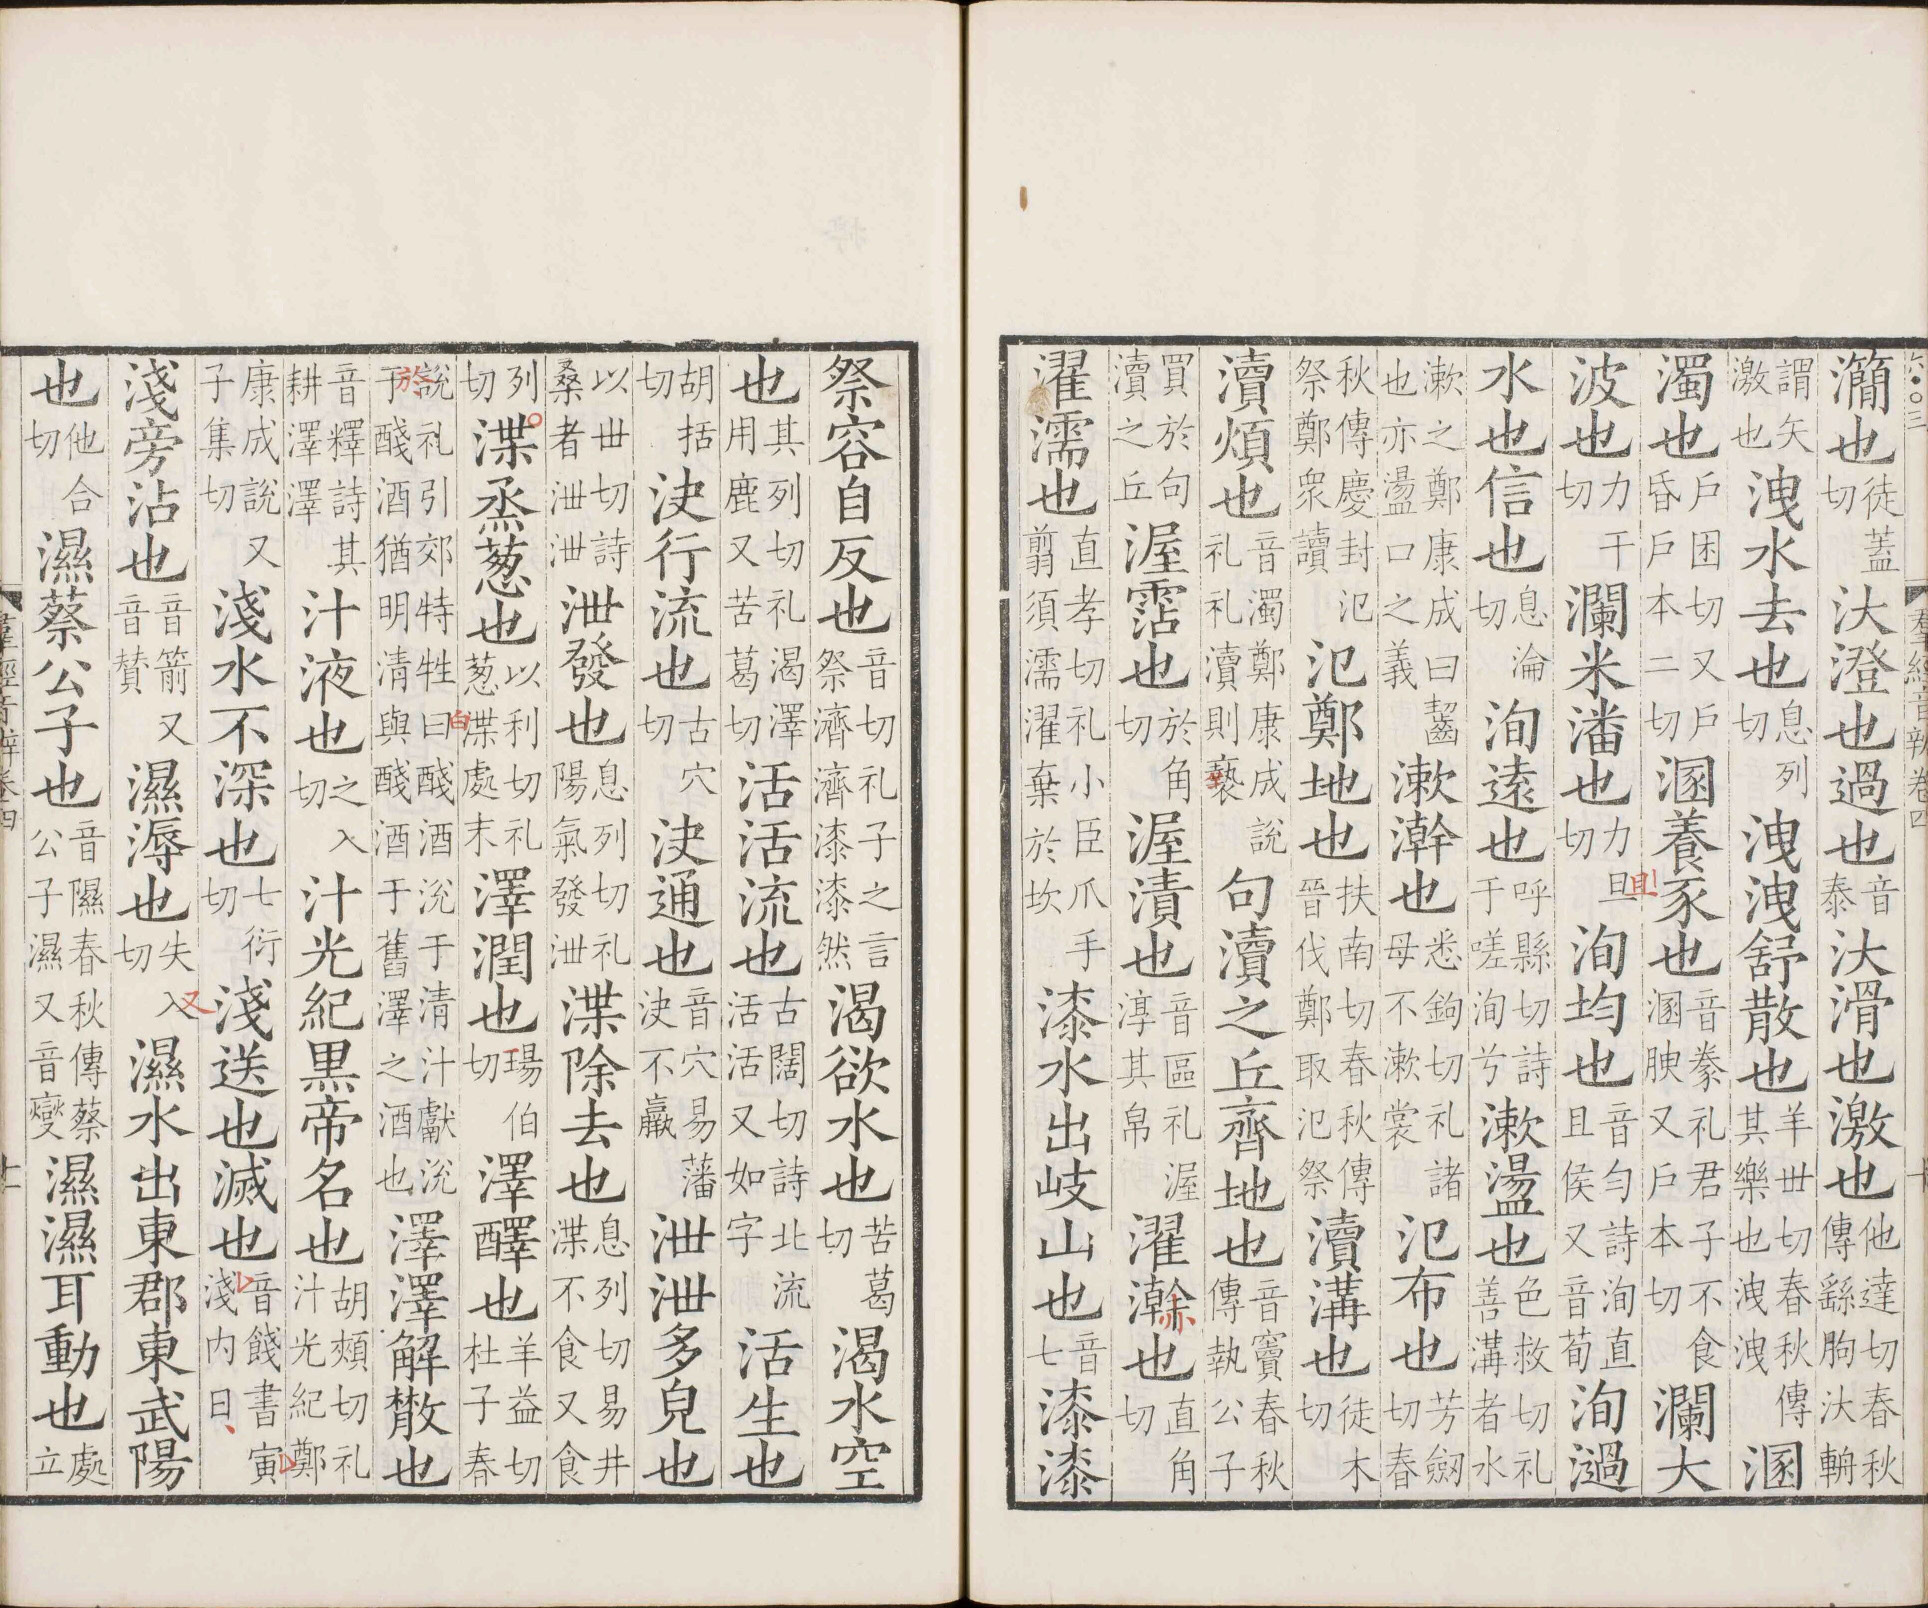 瀄也徒蓋切汏澄也過也音泰汏滑也激也他達切春秋傳繇胊汏輈
謂矢激也洩水去也息列切洩洩舒散也羊丗切春秋傳其樂也洩洩溷
濁也戶困切又戶昏戶本二切溷養豕也音豢礼君子不食溷腴又戶本切瀾大
波也力干切瀾米潘也力旦切洵均也音勻詩洵直且侯又音荀洵過
水也信也息淪切洵遠也呼縣切詩于嗟洵兮漱盪也色救切礼善溝者水
漱之鄭康成曰齧也亦盪口之義漱澣也悉鉤切礼諸母不漱裳氾布也芳劔切春
秋傳慶封氾祭鄭衆讀氾鄭地也扶南切春秋傳晉伐鄭取氾祭瀆溝也徒木切
瀆煩也音濁鄭康成說礼礼瀆則褻句瀆之丘齊地也音竇春秋傳執公子
買於句瀆之丘渥霑也於角切渥漬也音區礼渥淳其帛濯瀚也直角切
濯濡也直孝切礼小臣爪手翦須濡濯棄於坎漆水出岐山也音七漆漆
祭容自反也音切礼子之言祭濟濟漆漆然渴欲水也苦葛切渴水空
也其列切礼渴澤用鹿又苦葛切活活流也古闊切詩北流活活又如字活生也
胡括切決行流也古穴切決通也音穴易藩決不羸泄泄多皃也
以丗切詩桑者泄泄泄發也息列切礼陽氣發泄渫除去也息列切易井渫不食又食
列切渫烝葱也以利切礼葱渫處末澤潤也瑒伯切澤醳也羊益切杜子春
說礼引郊特牲曰醆酒涚于清汁獻涚于醆酒猶明清與醆酒于舊澤之酒也澤澤解散也
音釋詩其耕澤澤汁液也之入切汁光紀黒帝名也胡頰切礼汁光紀鄭
康成說又子集切淺水不深也七衍切淺送也滅也音餞書寅淺内日
淺旁沾也音箭又音贊濕溽也失入切濕水出東郡東武陽
也他合切濕蔡公子也音隰春秋傳蔡公子濕又音燮濕濕耳動也處立